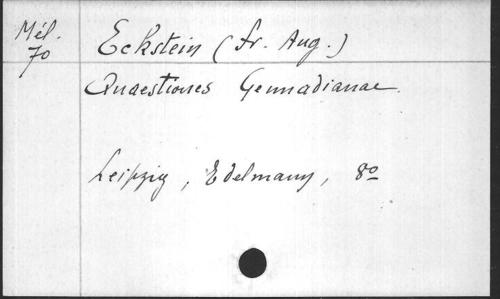 Mél.
70
Eckstein (Fr. Aug.)
Quaestiones Gennadianae.
Leipzig, Edelmann, 8º